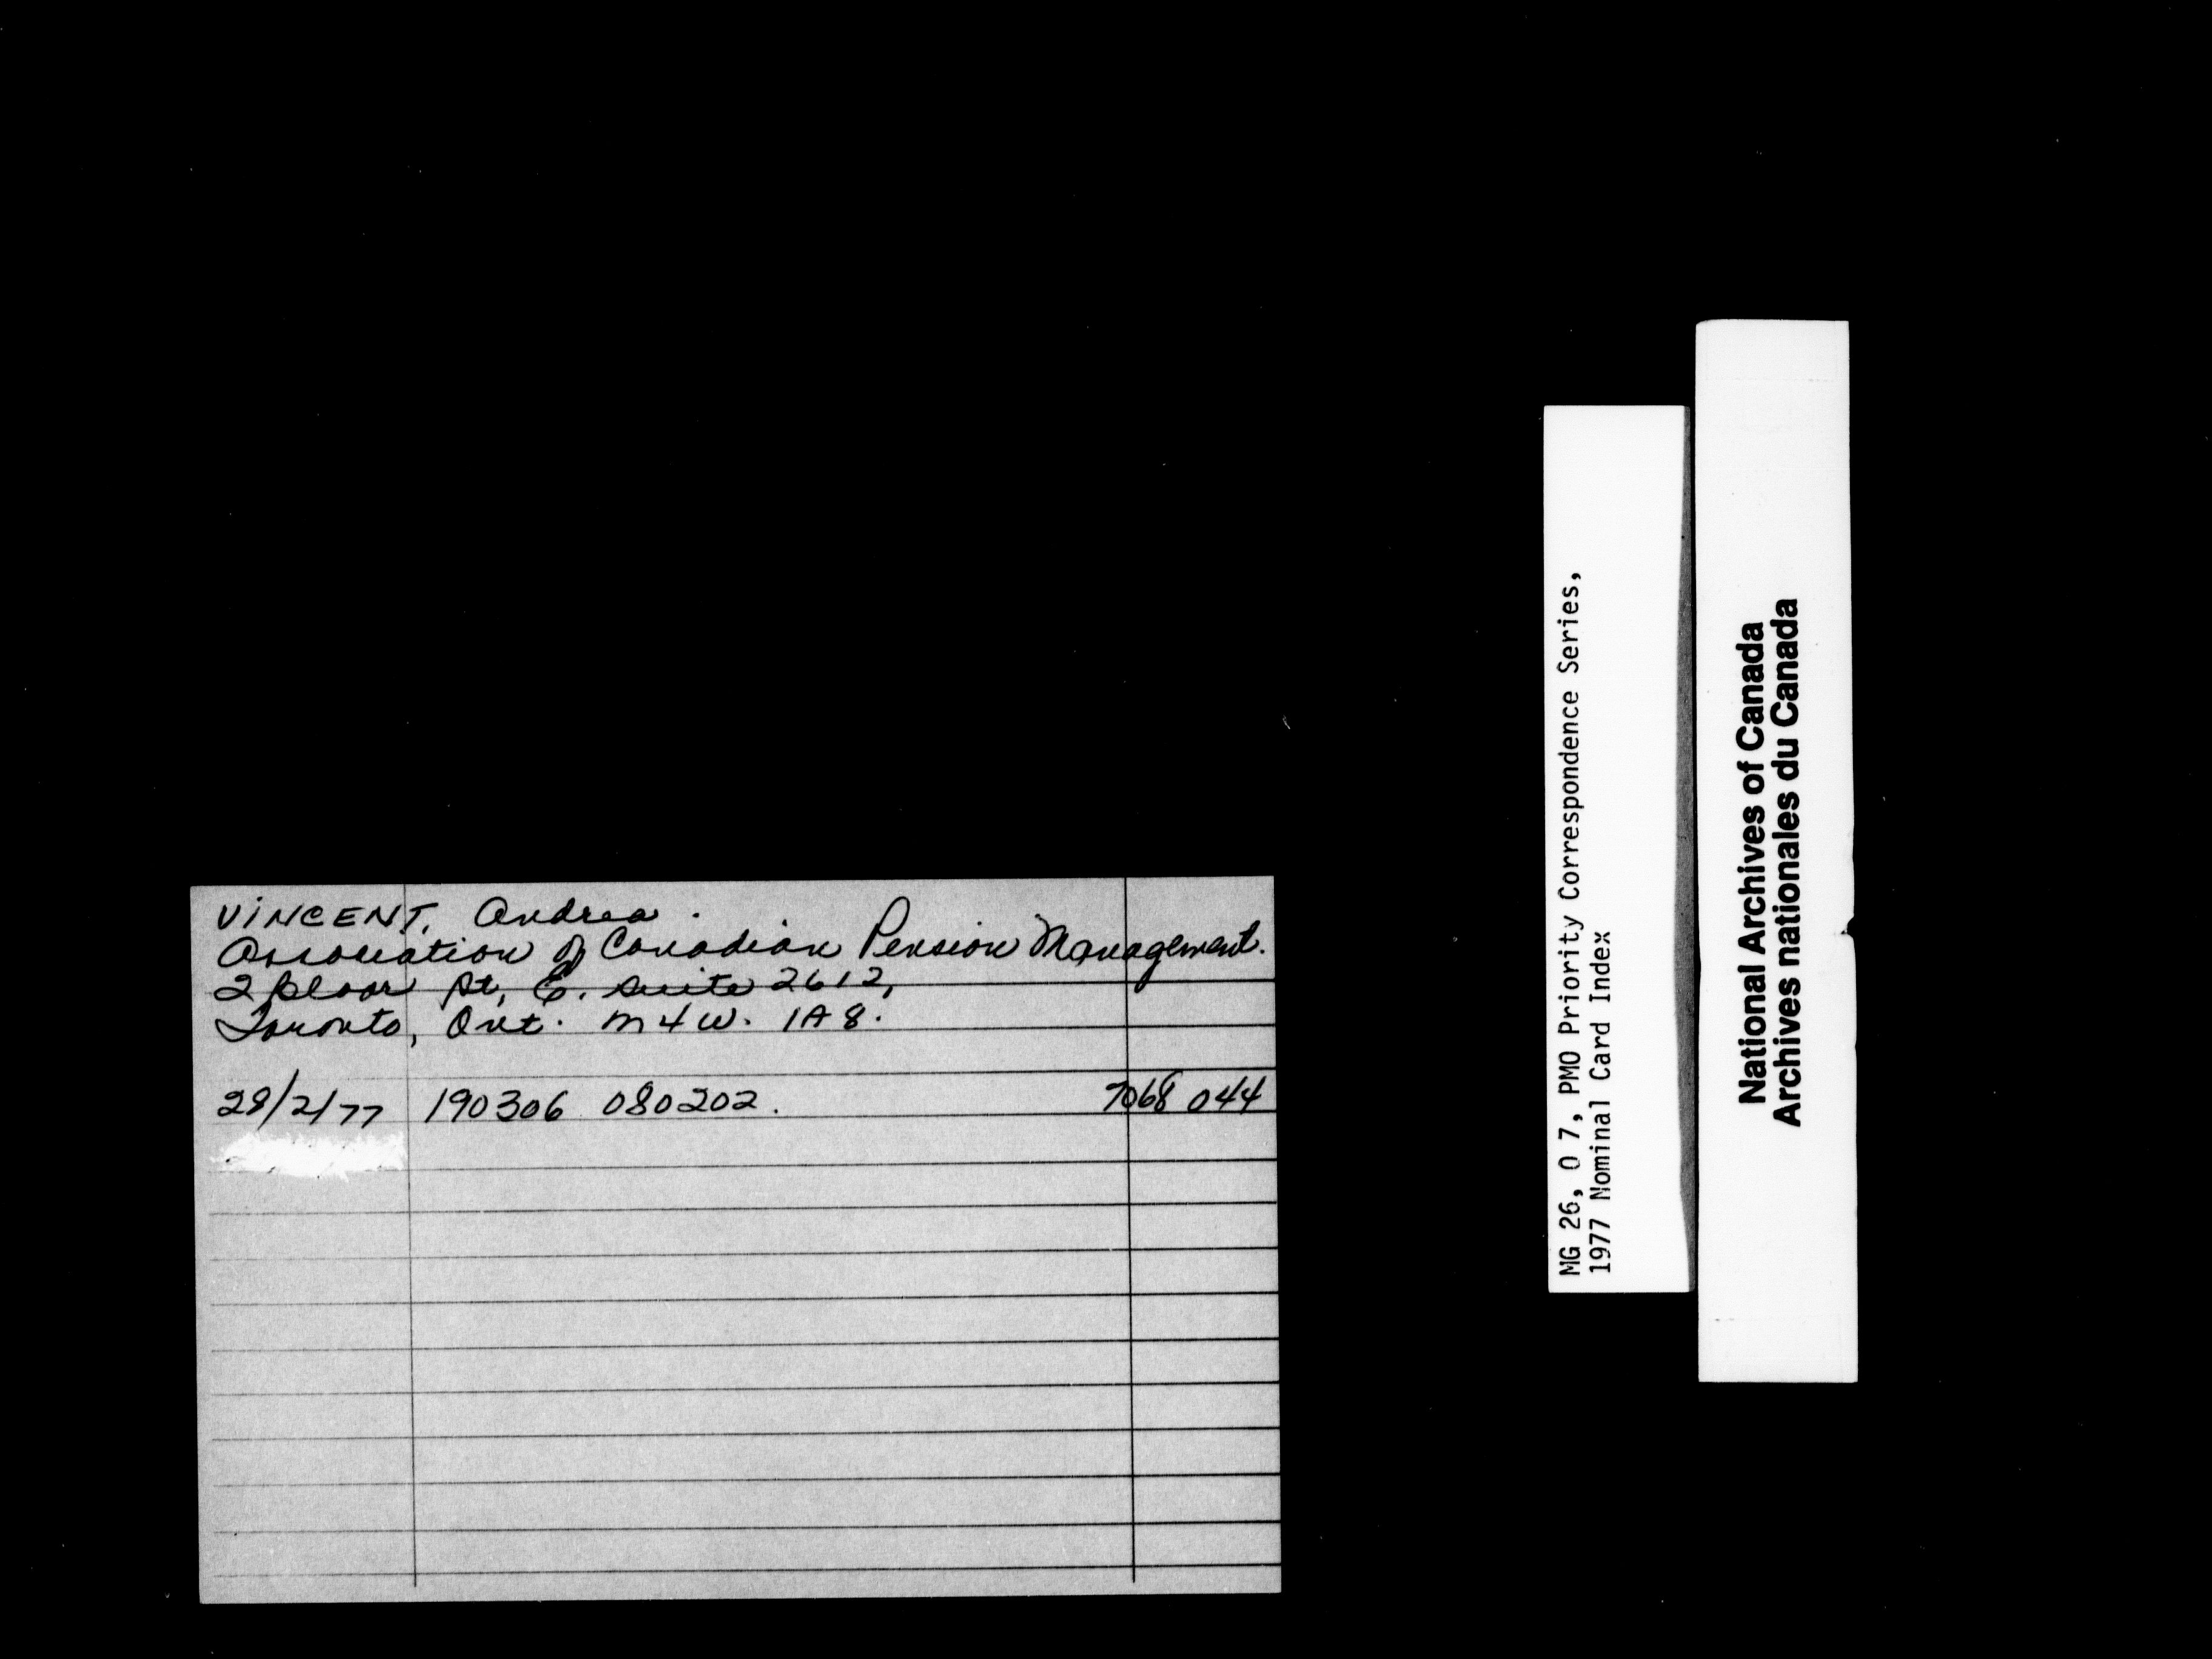 VINCENT, Andrea.
Association of Canadian Pension Management.
2 Bloor St, E. Suite 2612,
Toronto, Ont. M4W. 1A8.
28/2/77 190306 080202. 7068 044
MG 26, O 7, PMO Priority Correspondence Series,
1977 Nominal Card Index
National Archives of Canada
Archives nationales du Canada